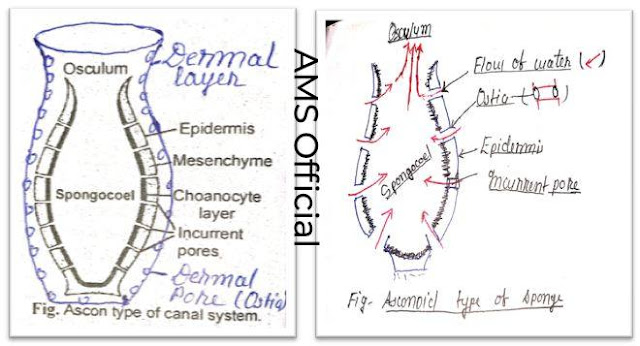 Osculum
Dermal
layer
Epidermis
Mesenchyme
Spongocoel
Choanocyte
layer
Incurrent
pores
Dermal
Pore (Ostia)
Fig. Ascon type of canal system.
AMS Official
Osculum
Flow of water (↙)
Ostia ( )
Epidermis
Spongocoel
Incurrent pore
Fig- Asconoid type of Sponge